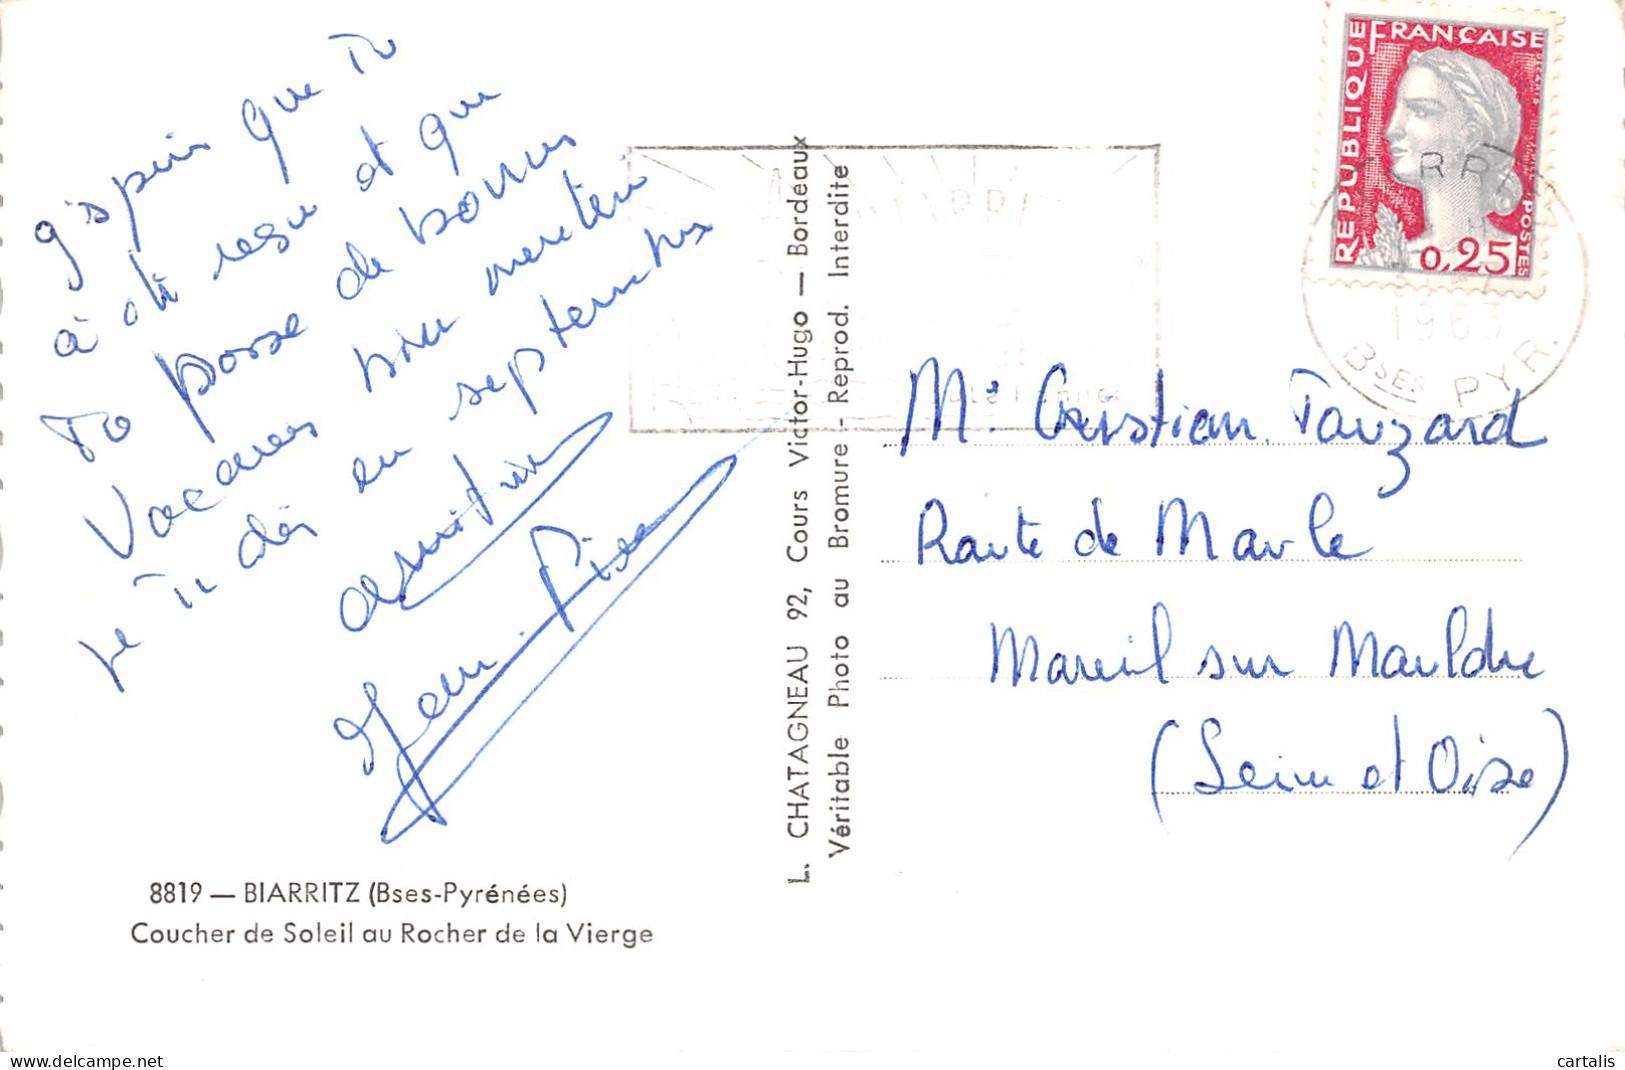 j'espère que Tu
a été reçu et que
Tu passe de bonnes
Vacances bien méritées
je Tu dis en septembre
amitiés
Jean Pierre
8819 — BIARRITZ (Bses-Pyrénées)
Coucher de Soleil au Rocher de la Vierge
L. CHATAGNEAU 92, Cours Victor-Hugo — Bordeaux
Véritable Photo au Bromure - Reprod. Interdite
REPUBLIQUE FRANÇAISE
POSTES
0,25
1963
Bses PYR.
Mr Christian Tauzard
Route de Marle
Mareil sur Mauldre
(Seine et Oise)
www.delcampe.net
cartalis